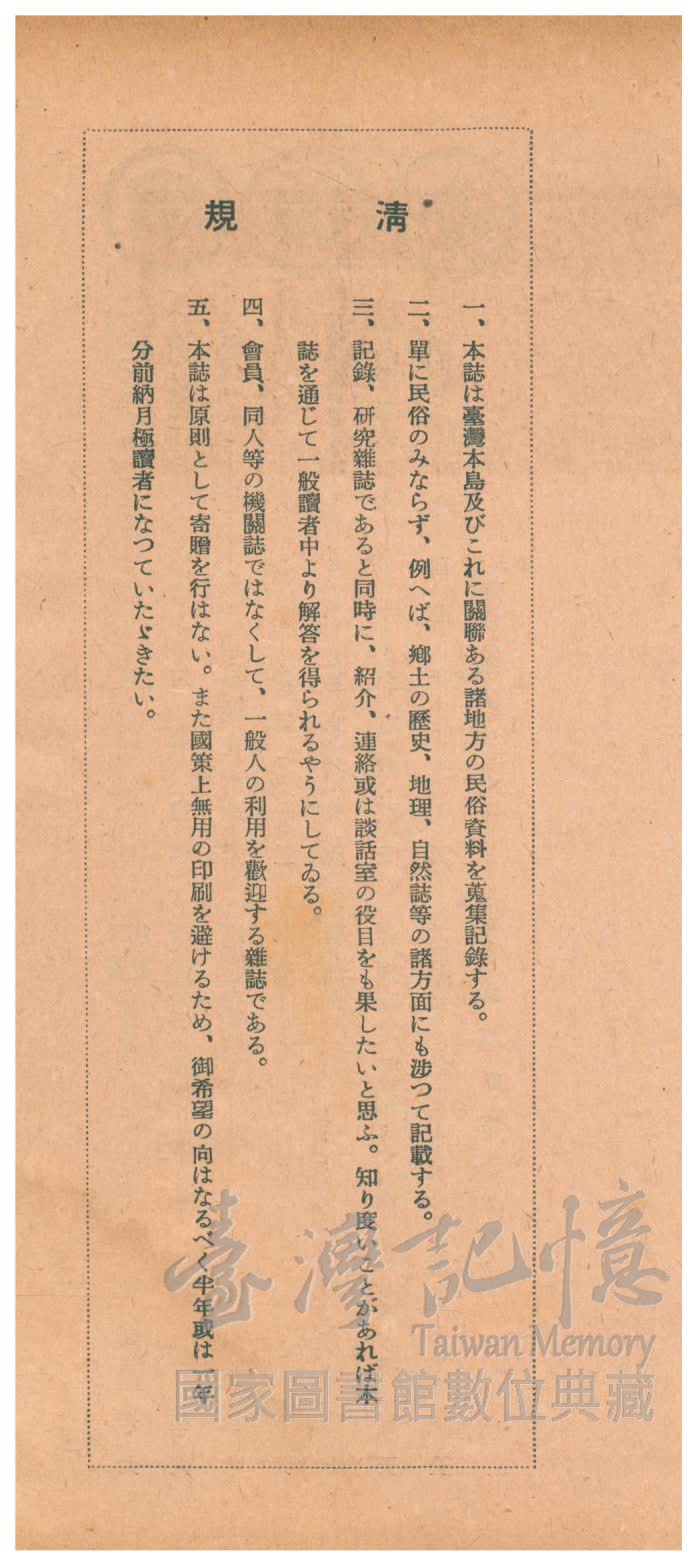 清規
一、本誌は臺灣本島及びこれに關聯ある諸地方の民俗資料を蒐集記錄する。
二、單に民俗のみならず、例へば、鄕土の歷史、地理、自然誌等の諸方面にも涉つて記載する。
三、記錄、硏究雜誌であると同時に、紹介、連絡或は談話室の役目をも果したいと思ふ。知り度いことがあれば本
誌を通じて一般讀者中より解答を得られるやうにしてゐる。
四、會員、同人等の機關誌ではなくして、一般人の利用を歡迎する雜誌である。
五、本誌は原則として寄贈を行はない。また國策上無用の印刷を避けるため、御希望の向はなるべく半年或は一年
分前納月極讀者になつていたゞきたい。
臺灣記憶
Taiwan Memory
國家圖書館數位典藏